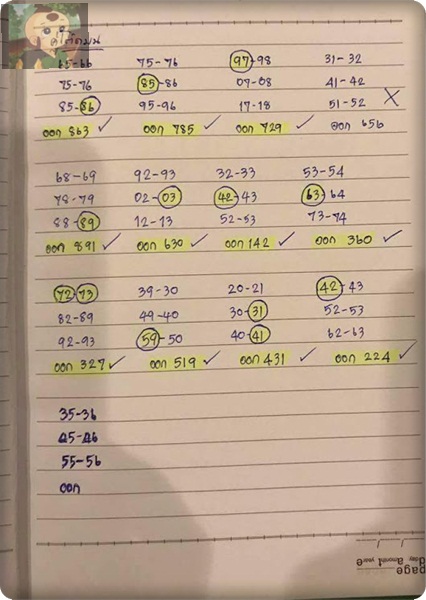 65-66 75-76 97-98 31-32
75-76 85-86 07-08 41-42
85-86 95-96 17-18 51-52
ออก 863 ออก 785 ออก 729 ออก 656
68-69 92-93 32-33 53-54
78-79 02-03 42-43 63-64
88-89 12-13 52-53 73-74
ออก 891 ออก 630 ออก 142 ออก 360
72-73 39-30 20-21 42-43
82-89 49-40 30-31 52-53
92-93 59-50 40-41 62-63
ออก 327 ออก 519 ออก 431 ออก 224
35-36
45-46
55-56
ออก
day month year
page